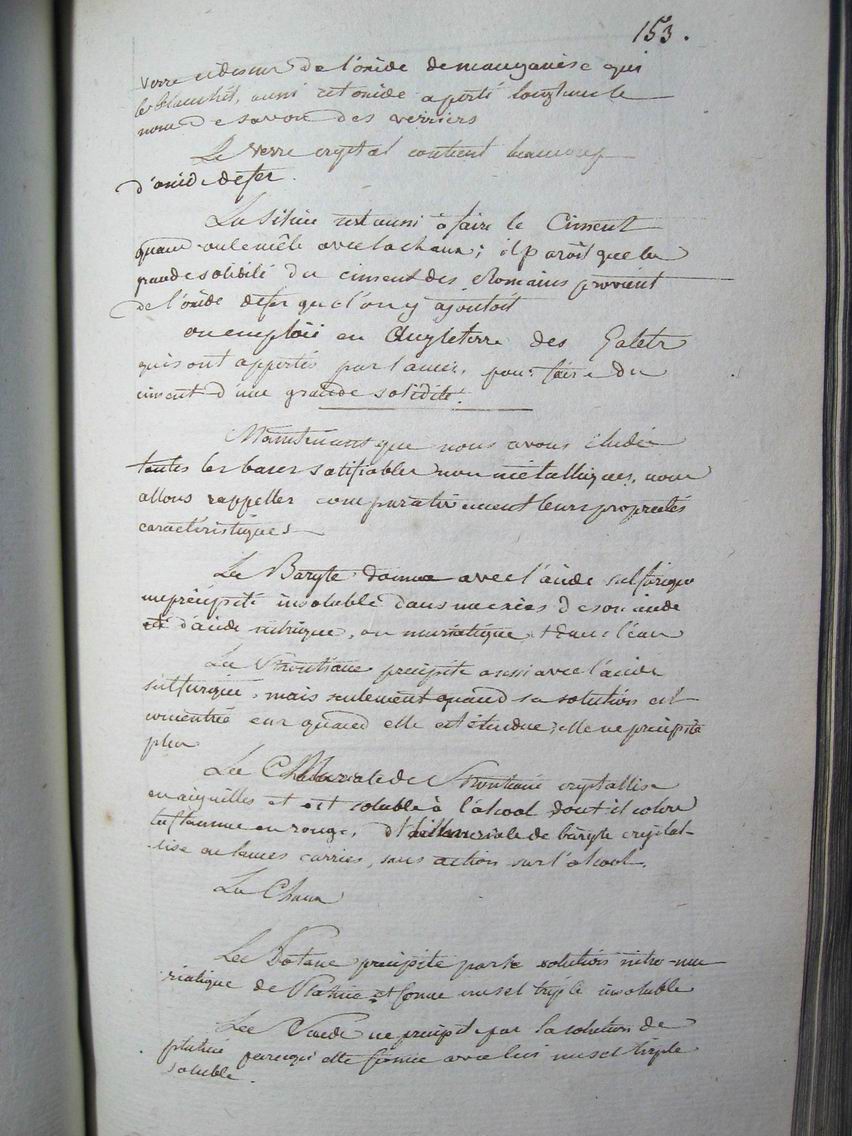 153.
verre au dessus de l'oxide de manganèse qui
les blanchit, aussi cet oxide a porté longtems le
nom de savon des verriers
Le verre crystal contient beaucoup
d'oxide de fer.
La Silice sert aussi à faire le Ciment
quand on le mêle avec la chaux; il paroit que la
grande solidité du ciment des Romains provient
de l'oxide de fer que l'on y ajoutoit
on emploi en Angleterre des Galets
qui sont apportés par la mer, pour faire du
ciment d'une grande solidité.
Maintenant que nous avons étudié
toutes les bases salifiables non métalliques, nous
allons rappeller comparativement leurs propriétés
caractéristiques
La Baryte donne avec l'acide sulfurique
un précipité insoluble dans un excès de son acide
d'acide nitrique, ou muriatique et dans l'eau
La Strontiane précipite aussi avec l'acide
sulfurique, mais seulement quand sa solution est
concentrée car quand elle est étendue; elle ne précipite
plus
Le Muriate de Strontiane crystallise
en aiguilles et est soluble à l'alcool dont il colore
la flamme en rouge, le muriate de baryte crystal-
lise en lames carrées, sans action sur l'alcool.
La Chaux
La Potasse précipite par la solution nitro-mu
riatique de Platine et forme un sel triple insoluble
La Soude ne précipite par la solution de
platine parcequ'elle forme avec lui un sel triple
soluble.